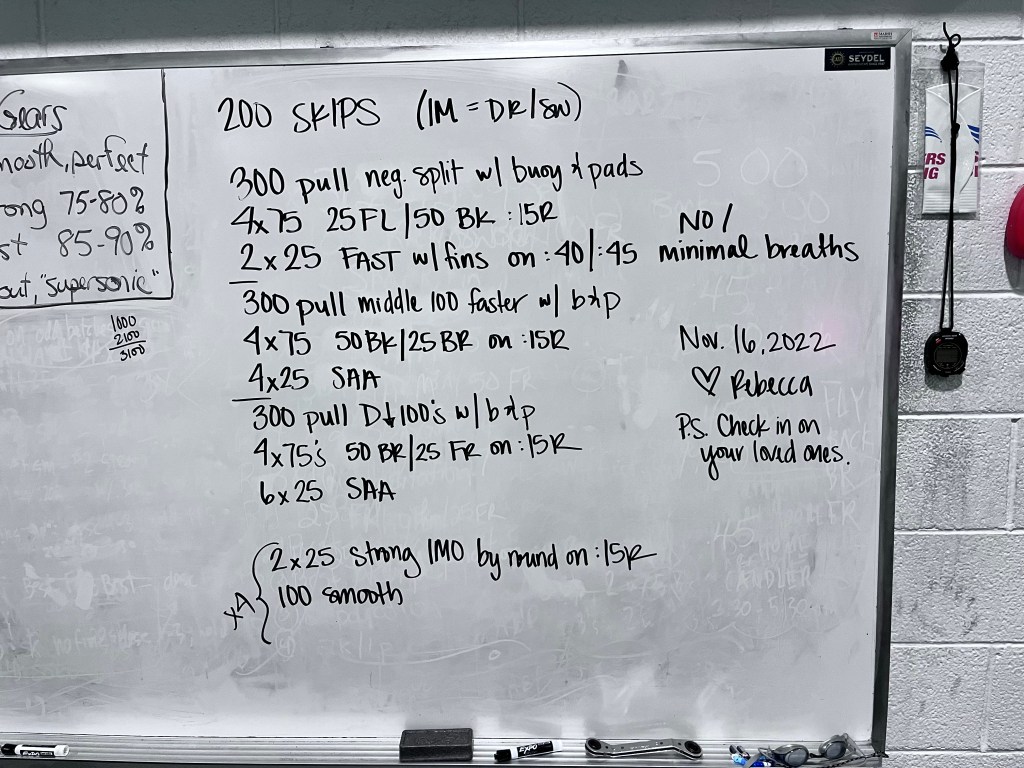 Gears
mooth, perfect
ong 75-80%
st 85-90%
out, "supersonic"
1000
2100
3100
200 SKIPS (IM = DR/SW)
300 pull neg. split w/ buoy & pads
4x75 25 FL/50 BK :15R
2x25 FAST w/ fins on :40/:45
NO/
minimal breaths
300 pull middle 100 faster w/ b&p
4x75 50 BK/25 BR on :15R
4x25 SAA
300 pull D↓100's w/ b&p
4x75's 50 BR/25 FR on :15R
6x25 SAA
x4 { 2x25 strong IMO by round on :15R
100 smooth
Nov. 16, 2022
♡ Rebecca
P.S. Check in on
your loved ones.
SEYDEL
RS
NG
EXPO